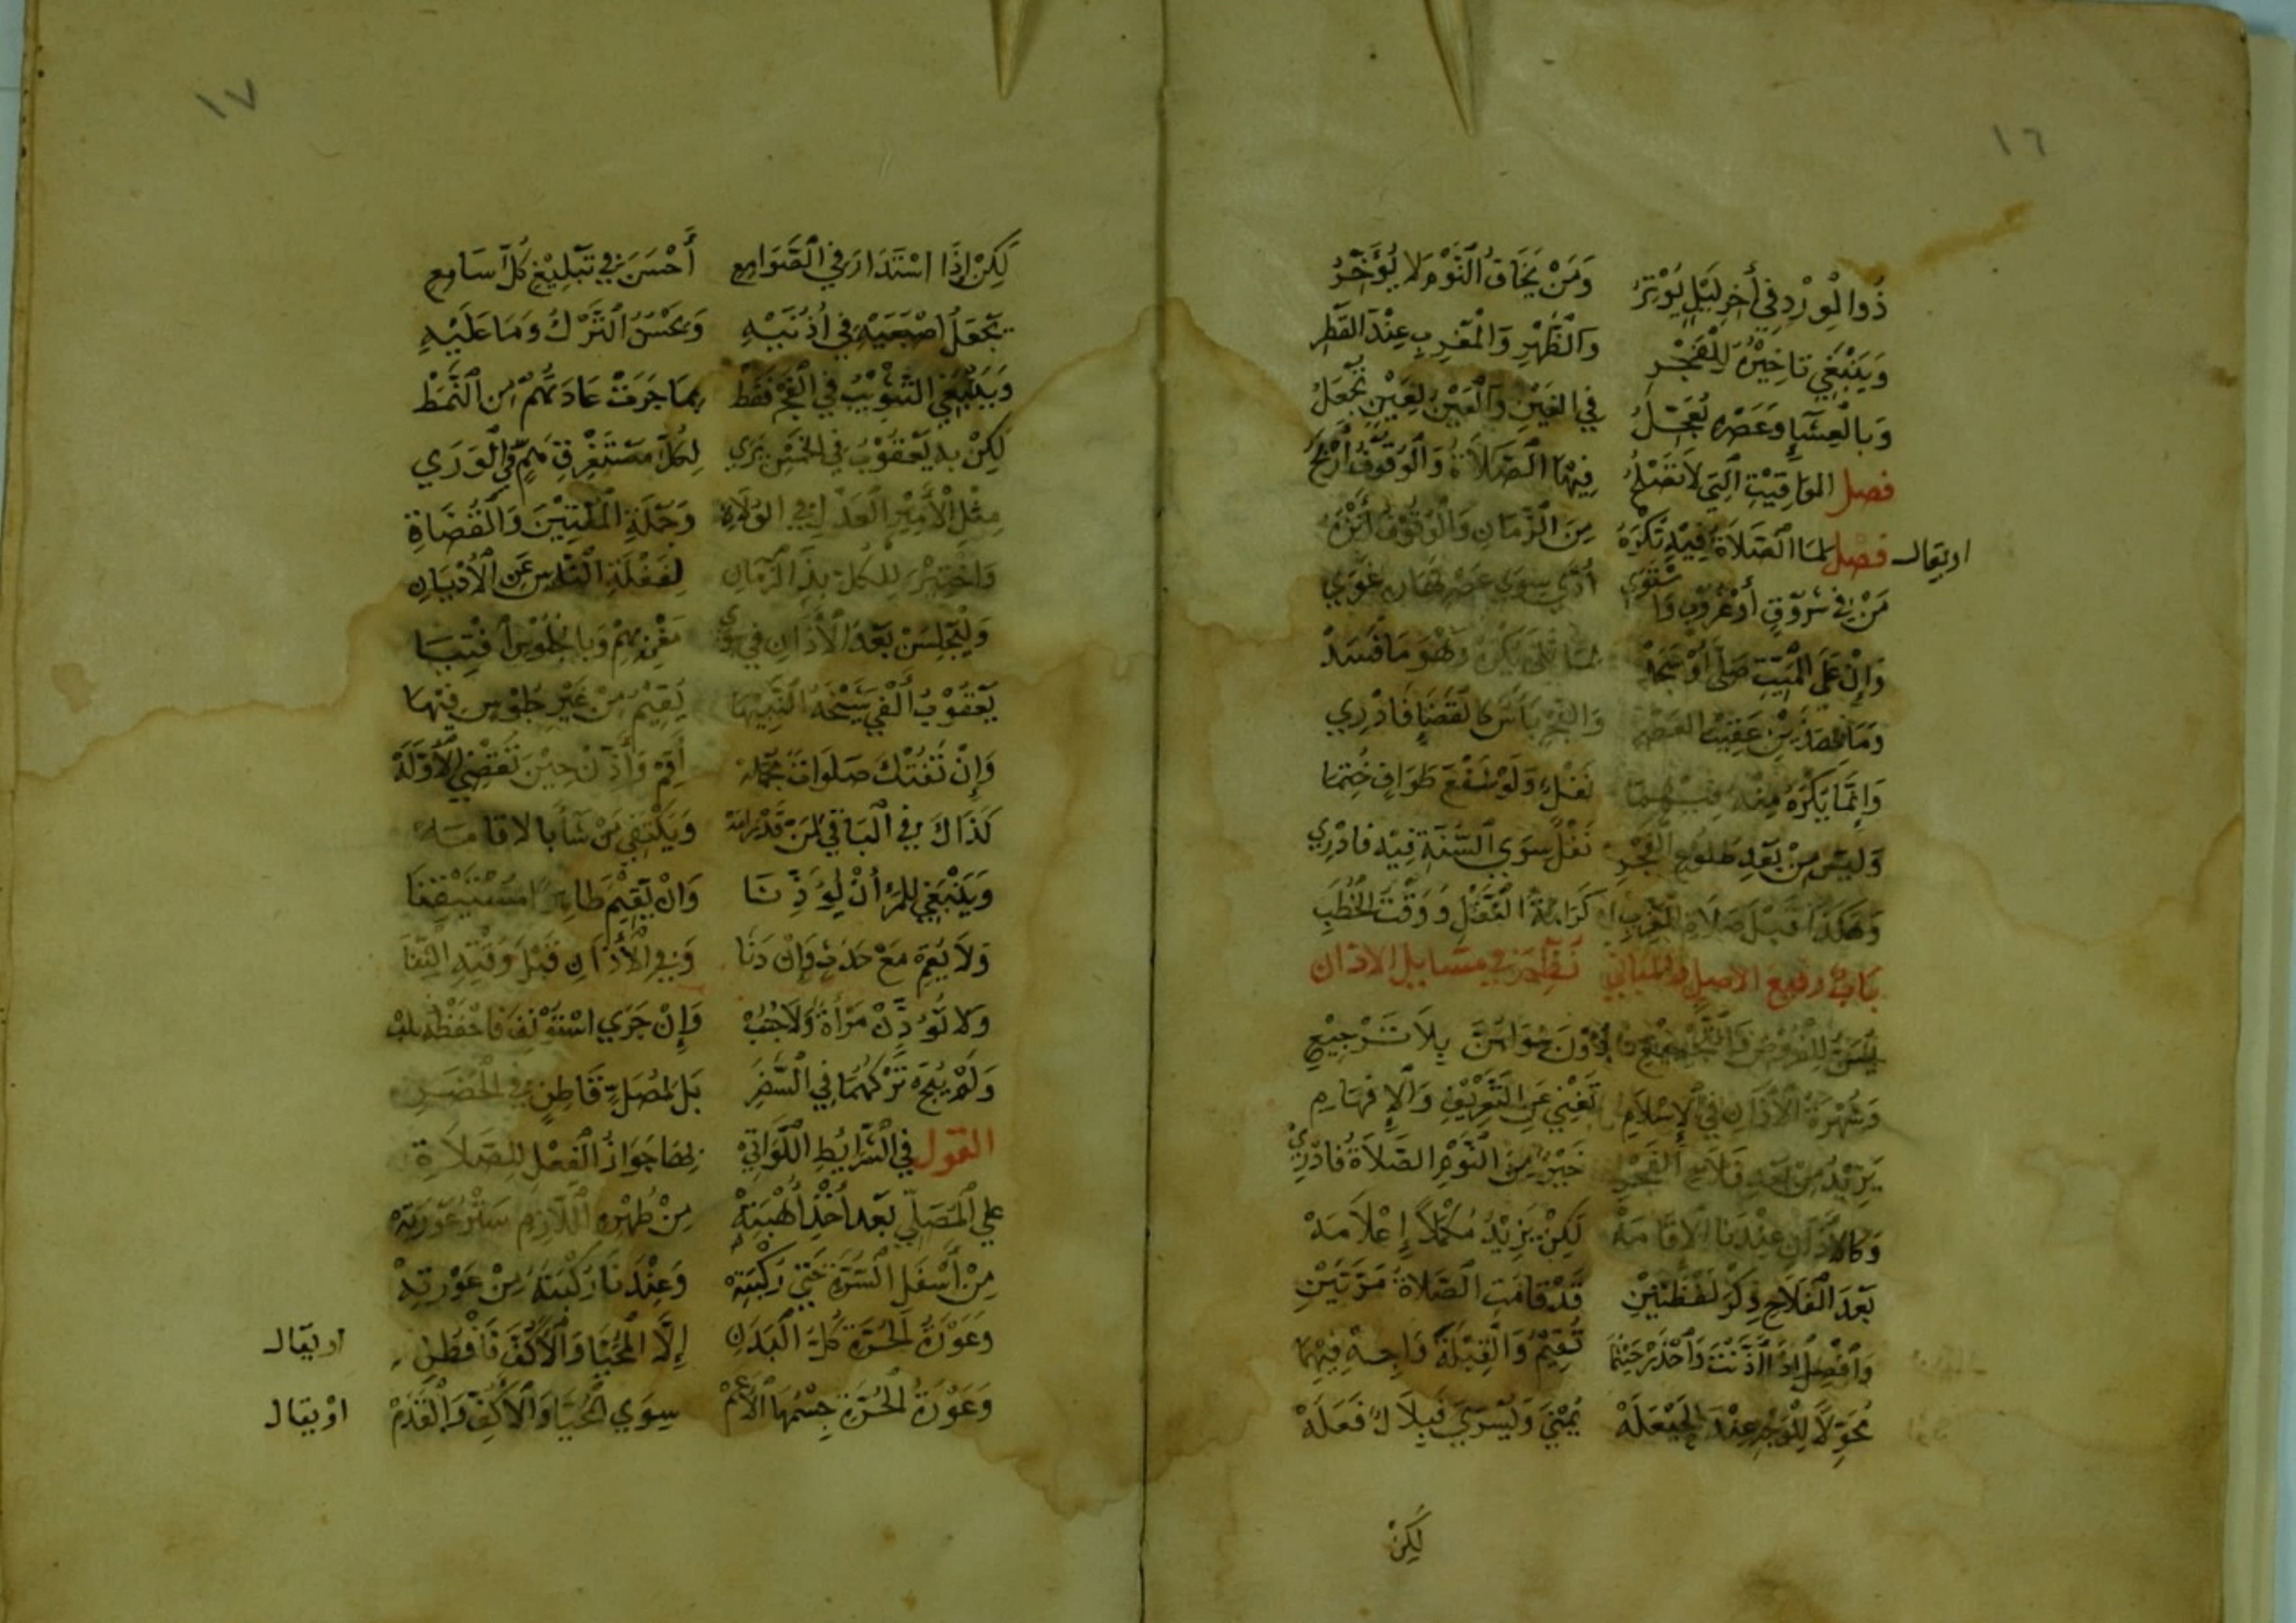 ١٦
ذُو الْوِرْدِ فِي أَخِرِ لَيْلٍ يُوْتِرُ وَمَنْ يَخَافُ النَّوْمَ لَا يُؤَخِّرُ
وَيَنْبَغِي تَاخِيْرُهُ لِلْفَجْرِ وَالظُّهْرِ وَالْمَغْرِبِ عِنْدَ القَطْرِ
وَبِالْعِشَاءِ وَعَصْرِهِ يُعَجِّلُ فِي الغَيْنِ وَالْعَيْنُ لِعَيْنٍ تُجْعَلُ
فصل المَوَاقِيْتِ الَّتِي لَا تَصْلُحُ فِيْهَا الصَّلَاةُ وَالْوُقُوْفُ أَرْبَحُ
اويقال فصل لِمَا الصَّلَاةُ فِيْهِ تُكْرَهُ مِنَ الزَّمَانِ وَالْوُقُوْفُ
مَنْ فِي شُرُوْقٍ أَوْ غُرُوْبٍ وَاسْتَوَى أَدَّى سِوَى عَصْرِ نَهَارٍ غَوِي
وَإِنْ عَلَى المَيِّتِ صَلَّى أَوْ سَجَدْ يُكْرَهُ وَهْوَ مَا فَسَدْ
وَمَا عَقِيْبَ العَصْرِ وَالفَجْرِ بَأْسٌ كَالْقَضَاءِ فَادْرِي
وَإِنَّمَا يُكْرَهُ مِنْهُ فِيْهِمَا نَفْلٌ وَلَوْ شَفْعَ طَوَافٍ خُتِمَا
وَلَيْسَ مِنْ بَعْدِ طُلُوْعِ الْفَجْرِ نَفْلٌ سِوَي السُّنَّةِ فِيْهِ فَادْرِي
وَهَكَذَا قَبْلَ صَلَاةِ الْمَغْرِبِ كَرَاهَةُ النَّفْلِ وَوَقْتَ الخُطَبِ
بَابٌ رفيع الاصل والمباني نَظْمٌ فِي مسايل الاذان
يُسَنُّ لِلْفُرُوْضِ بِلَا تَرْجِيْعِ
وَشُهْرَةُ الْأَذَانِ فِي الْإِسْلَامِ تُغْنِي عَنِ التَّعْرِيْفِ وَالْإِفْهَامِ
يَزِيْدُ مِنْ بَعْدِ فَلَاحِ الْفَجْرِ خَيْرٌ مِنَ النَّوْمِ الصَّلَاةُ فَادْرِي
وَكَالْأَذَانِ عِنْدَنَا الْإِقَامَهْ لَكِنْ يَزِيْدُ مُكْمِلًا إِعْلَامَهْ
بَعْدَ الْفَلَاحِ ذِكْرَ لَفْظَتَيْنِ قَدْ قَامَتِ الصَّلَاةُ مَرَّتَيْنِ
وَافْصِلْ إِذَا أَذَّنْتَ وَاحْذَرْ حَيْثُمَا تُقِيْمُ وَالْقِبْلَةَ وَاجِهْ فِيْهِمَا
مُحَوِّلًا لِلْوَجْهِ عِنْدَ الحَيْعَلَهْ يُمْنَي وَيُسْرَي فَبِلَالٌ فَعَلَهْ
لَكِنْ
١٧
لَكِنْ إِذَا اسْتَدَارَ فِي الصَّوَامِعِ أَحْسَنَ فِي تَبْلِيْغِ كُلِّ سَامِعِ
يَجْعَلُ اصْبَعَيْهِ فِي أُذُنَيْهِ وَيَحْسُنُ التَّرْكُ وَمَا عَلَيْهِ
وَيَنْبَغِي التَّثْوِيْبُ فِي الْفَجْرِ فَقَطْ بِمَا جَرَتْ عَادَتُهُمْ مِنَ النَّمَطْ
لَكِنْ بِهِ يَعْقُوْبُ فِي الْخَمْسِ يَرَي لِكُلِّ مُسْتَغْرِقِ هَمٍّ فِي الْوَرَي
مِثْلَ الْأَمِيْرِ الْعَدْلِ فِي الْوُلَاةِ وَجُمْلَةِ الْمُفْتِيْنَ وَالْقُضَاةِ
وَاخْتِيْرَ لِلْكُلِّ بِذَا الزَّمَانِ لِغَفْلَةِ النَّاسِ عَنِ الْأَدْيَانِ
وَلْيَجْلِسَنْ بَعْدَ الْأَذَانِ فِي سِوَى مَغْرِبِهِمْ وَبِالْجُلُوْسِ أَفْتِيَا
يَعْقُوْبُ أَلْفَي شَيْخَهُ النَّبِيْهَا يُقِيْمُ مِنْ غَيْرِ جُلُوْسٍ فِيْهَا
وَإِنْ تَفُتْكَ صَلَوَاتٌ جُمْلَهْ أَقِمْ وَأَذِّنْ حِيْنَ تَقْضِي الْأَوَّلَهْ
كَذَاكَ فِي الْبَاقِي لِمَنْ قَدْ رَامَهْ وَيَكْتَفِي مَنْ شَاءَ بِالاقَامَهْ
وَيَنْبَغِي لِلْمَرْءِ أَنْ يُؤَذِّنَا وَانْ يُقِيْمَ طَاهِرًا مُسْتَيْقِنَا
وَلَا يُقِمْ مَعْ حَدَثٍ وَإِنْ دَنَا وَفِي الْأَذَانِ قَبْلَ وَقْتِهِ
وَلَا تُؤَذِّنْ مَرْأَةٌ وَلَا جُنُبْ وَإِنْ جَرَي اسْتُؤْنِفَ فَاحْفَظْهُ تُصِبْ
وَلَمْ يُبَحْ تَرْكُهُمَا فِي السَّفَرِ بَلْ لِمُصَلٍّ قَاطِنٍ فِي الْحَضَرِ
القول فِي الشَّرَايِطِ اللَّوَاتِيْ بِهَا جَوَازُ الْفِعْلِ لِلصَّلَاةِ
عَلَي الْمُصَلِّي بَعْدَ أَخْذِ أُهْبَتِهْ مِنْ طُهْرِهِ اللَّازِمِ سَتْرُ عَوْرَتِهْ
مِنْ أَسْفَلِ السُّرَّةِ حَتَّي رُكْبَتِهْ وَعِنْدَنَا رُكْبَتُهُ مِنْ عَوْرَتِهْ
وَعَوْرَةُ الْحُرَّةِ كُلُّ الْبَدَنِ إِلَّا الْمُحَيَّا وَالْأَكُفَّ فَافْطُنِ اويقال
وَعَوْرَةُ الْحُرَّةِ جِسْمُهَا الْأَعَمْ سِوَي الْمُحَيَّا وَالْأَكُفِّ وَالْقَدَمْ اويقال